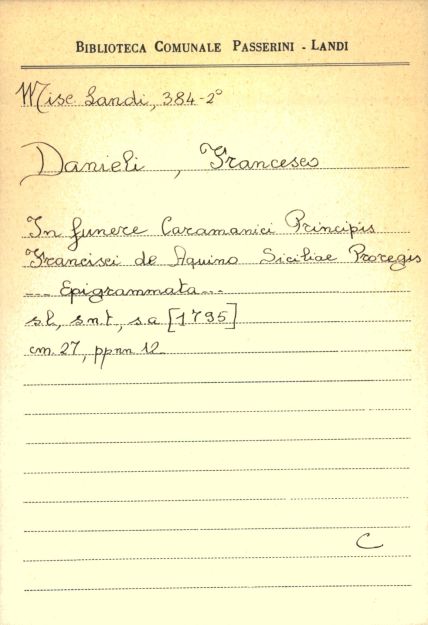 BIBLIOTECA COMUNALE PASSERINI - LANDI
Misc Landi, 384-2°
Danieli, Francesco
In funere Caramanici Principis
Francisci de Aquino Siciliae Proregis
--- Epigrammata...
s.l., s.n.t., s.a [1795]
cm. 27, ppnn 12
C